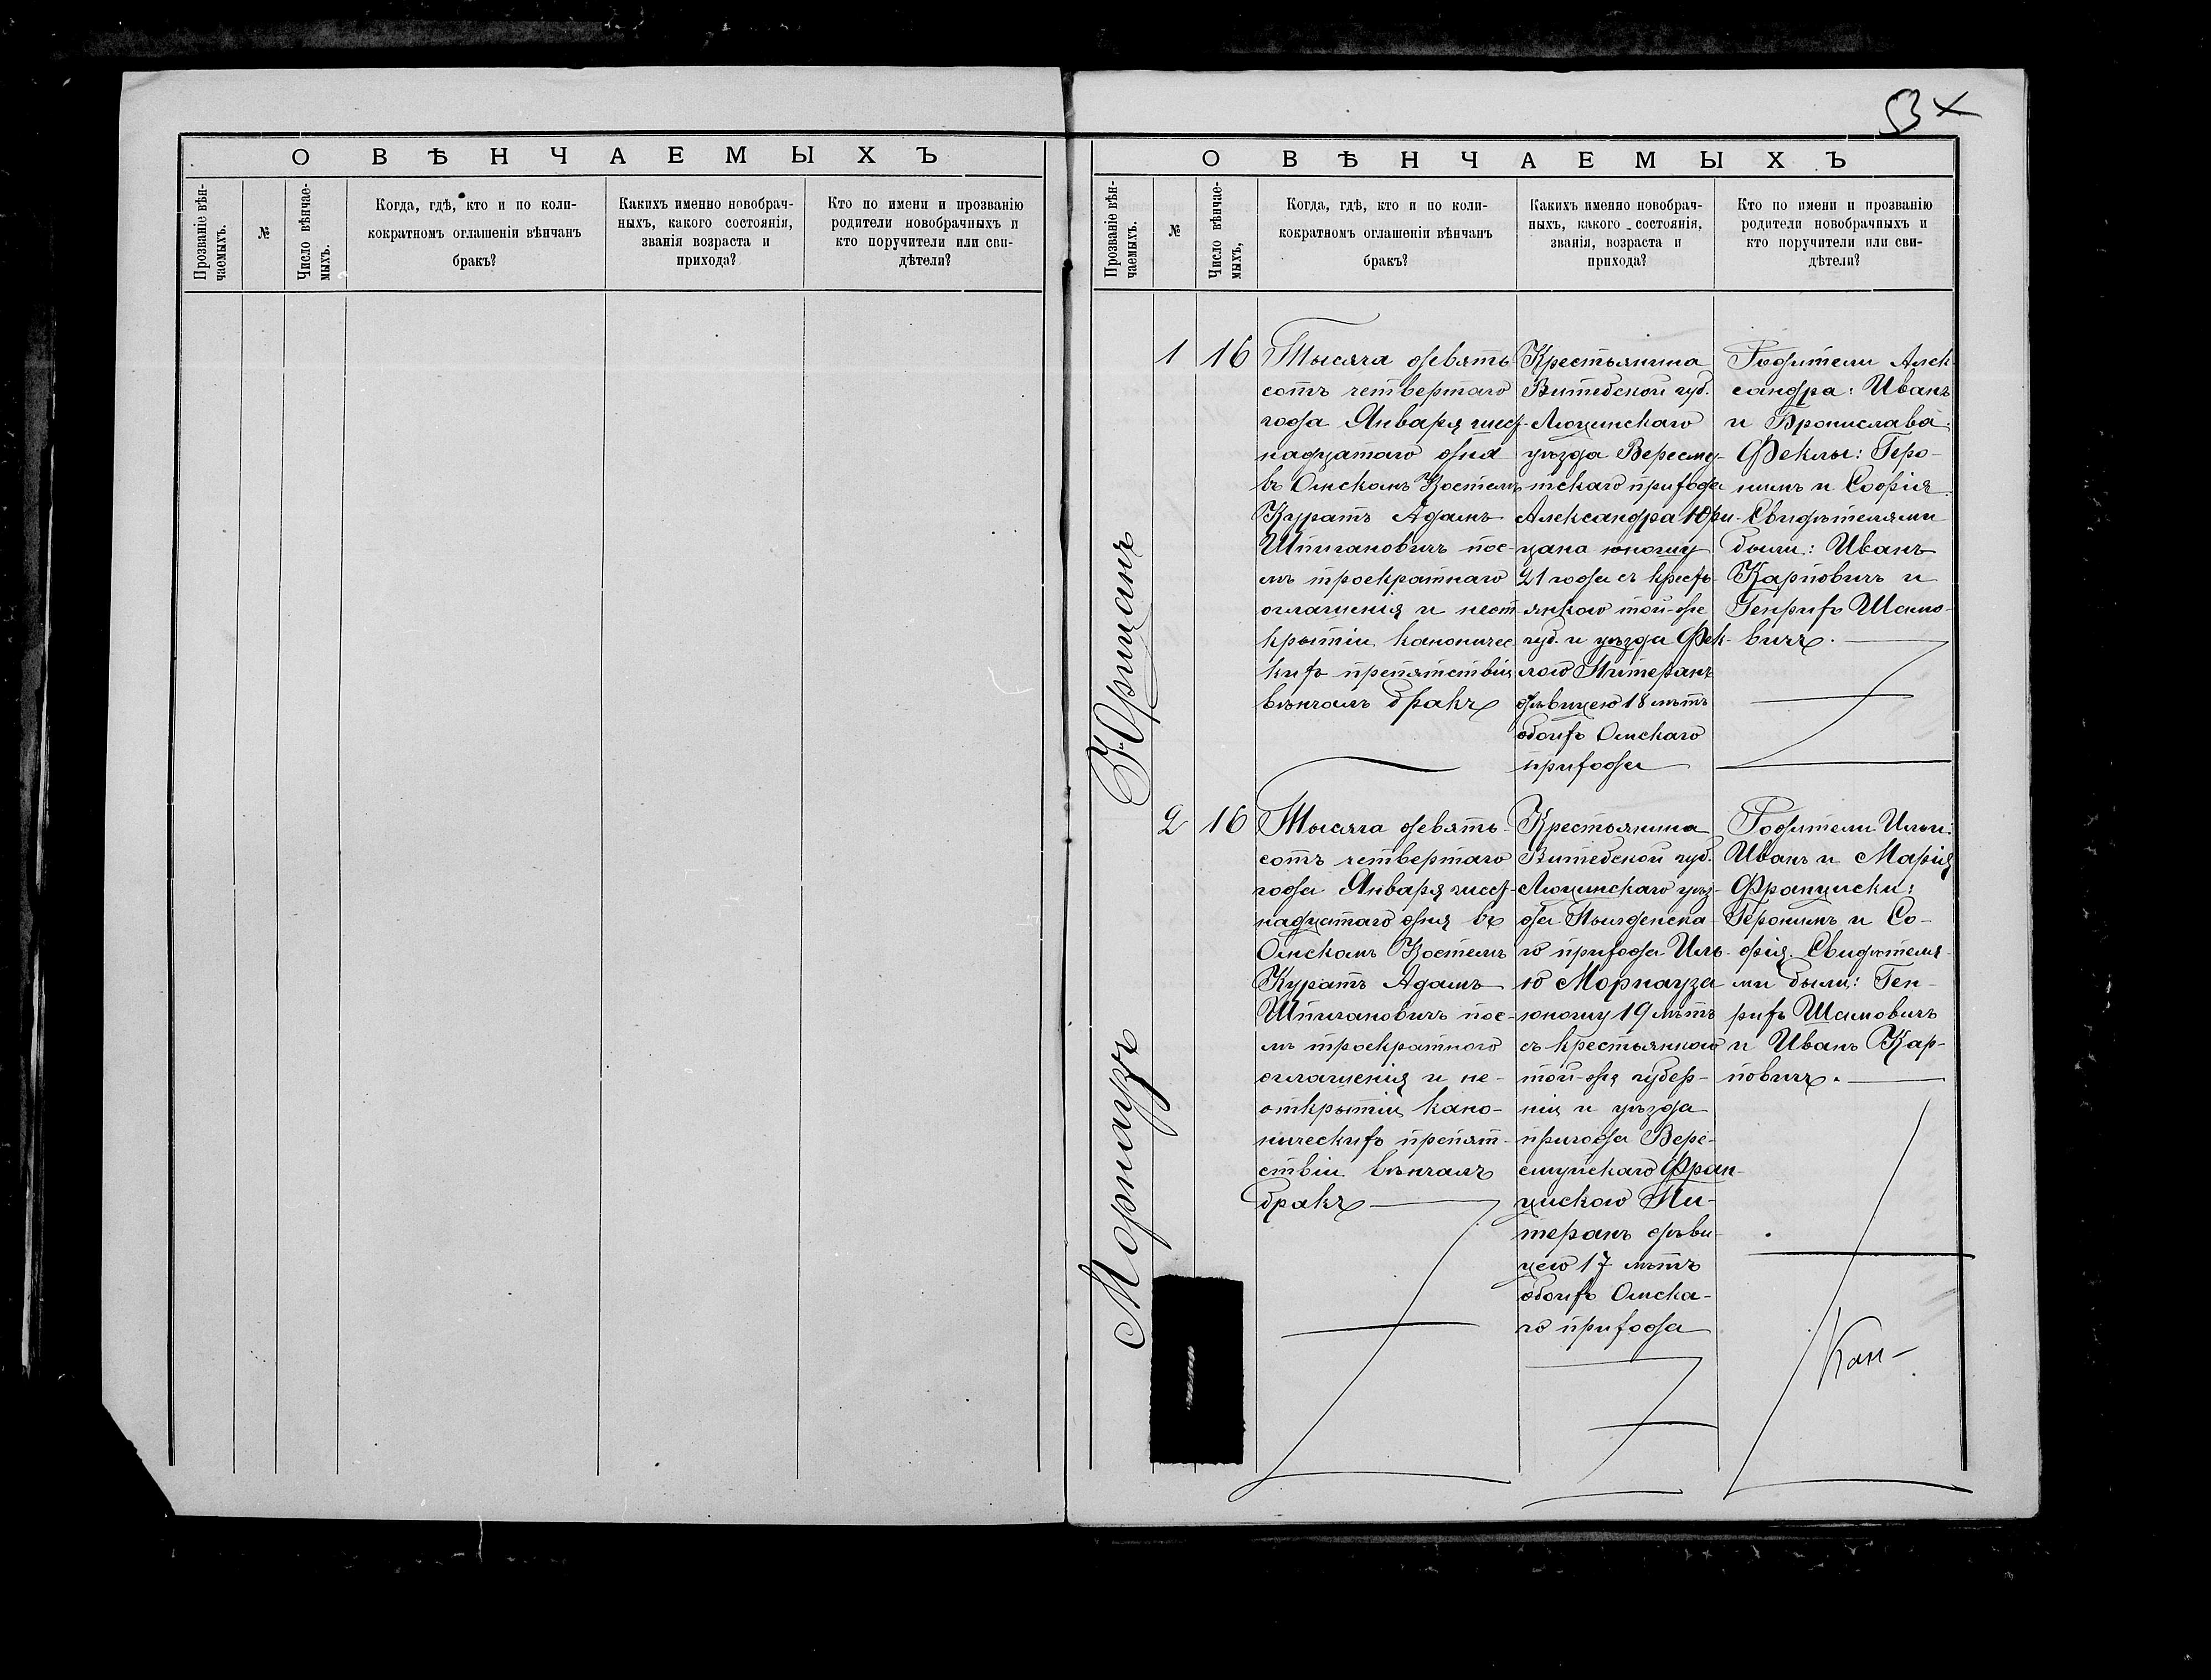 О ВѢНЧАЕМЫХЪ
Прозваніе вѣн-
чаемыхъ.
№
Число вѣнчае-
мыхъ.
Когда, гдѣ, кто и по коли-
кократномъ оглашеніи вѣнчанъ
бракъ?
Какихъ именно новобрач-
ныхъ, какого состоянія,
званія возраста и
прихода?
Кто по имени и прозванію
родители новобрачныхъ и
кто поручители или сви-
дѣтели?
53
О ВѢНЧАЕМЫХЪ
Прозваніе вѣн-
чаемыхъ.
№
Число вѣнчае-
мыхъ,
Когда, гдѣ, кто и по коли-
кократномъ оглашеніи вѣнчанъ
бракъ?
Какихъ именно новобрач-
ныхъ, какого состоянія,
званія, возраста и
прихода?
Кто по имени и прозванію
родители новобрачныхъ и
кто поручители или сви-
дѣтели?
Юрицанъ
1
16
Тысяча девять
сотъ четвертаго
года Января шест-
надцатаго дня
въ Омскомъ Костелѣ
Куратъ Адамъ
Шпигановичъ пос-
лѣ троекратнаго
оглашенія и неот
крытіи каноничес
кихъ препятствій
вѣнчалъ бракъ
Крестьянина
Витебской губ.
Люцинскаго
уѣзда
тскаго прихода
Александра Юри-
цана юношу
21 года съ кресть-
янкою той-же
губ. и уѣзда Фек-
лою Питеранъ
дѣвицею 18 лѣтъ
обоихъ Омскаго
прихода
Родители Алек
сандра: Иванъ
и Бронислава;
Феклы: Геро-
нимъ и Софія.
Свидѣтелями
были: Иванъ
Карповичъ и
Генрихъ Шимо-
вичъ.
Морнаузъ
2
16
Тысяча девять-
сотъ четвертаго
года Января шест-
надцатаго дня въ
Омскомъ Костелѣ
Куратъ Адамъ
Шпигановичъ пос-
лѣ троекратного
оглашенія и не-
открытіи кано-
ническихъ препят-
ствіи вѣнчалъ
бракъ
Крестьянина
Витебской губ.
Люцинскаго уѣз-
да Пылденска-
го прихода Иль-
ю Морнауза
юношу 19 лѣтъ
съ крестьянкою
той-же губер-
ніи и уѣзда
прихода Вере-
смуйскаго Фран-
цискою Пи-
теранъ дѣви-
цею 17 лѣтъ
обоихъ Омска-
го прихода
Родители Ильи:
Иванъ и Марія
Франциски:
Геронимъ и Со-
фія. Свидѣтеля-
ми были: Ген-
рихъ Шимовичъ
и Иванъ Кар-
повичъ.